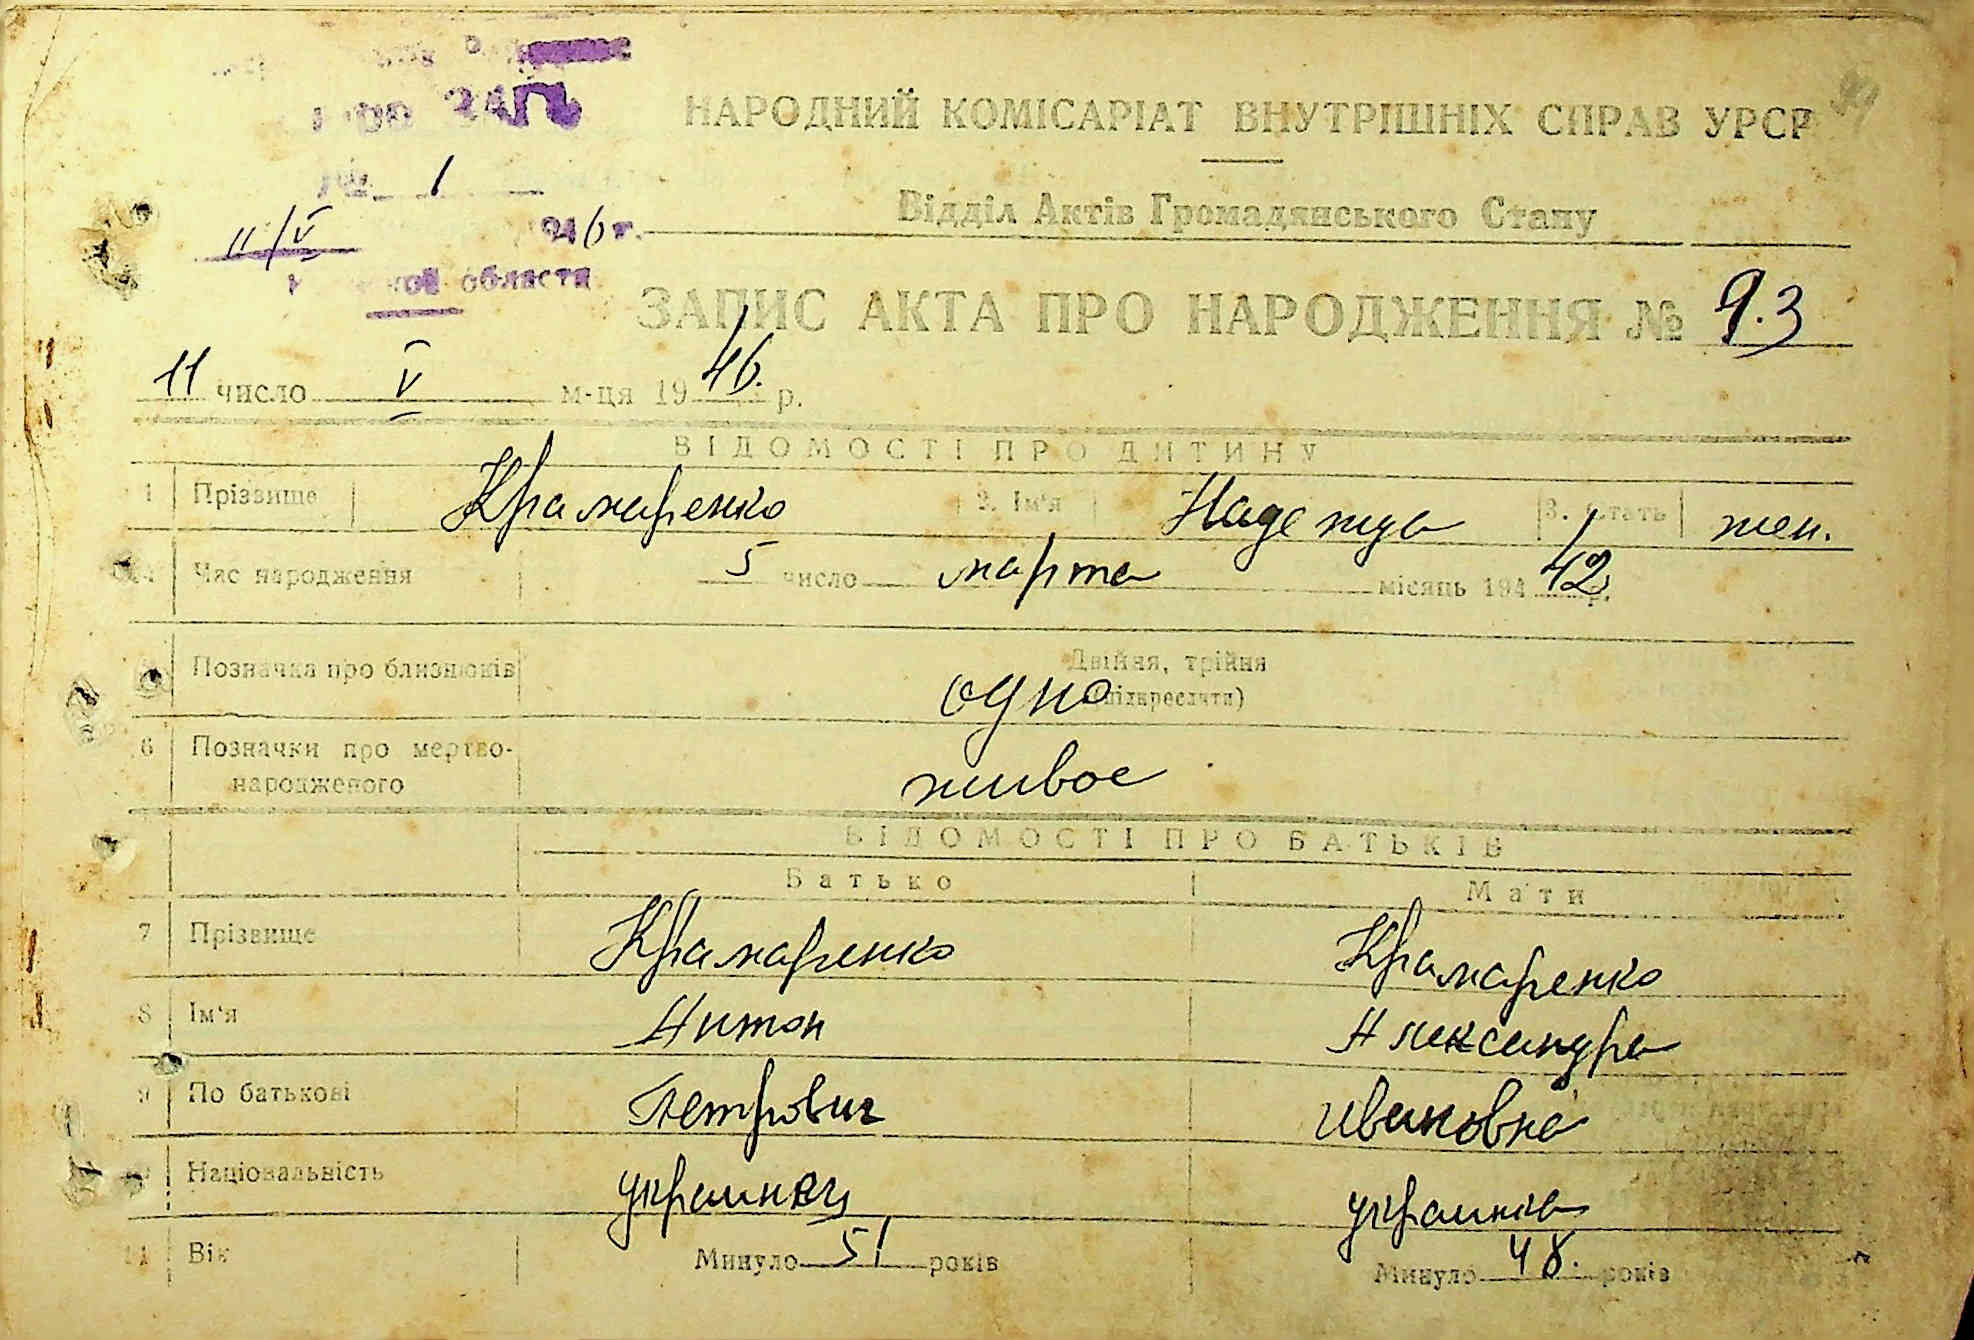 ЗАГС
НАРОДНИЙ КОМІСАРІАТ ВНУТРІШНІХ СПРАВ УРСР
№ 1
Відділ Актів Громадянського Стану
11/V 1946 г.
области
ЗАПИС АКТА ПРО НАРОДЖЕННЯ № 93
11 число V м-ця 1946. р.
ВІДОМОСТІ ПРО ДИТИНУ
1 Прізвище Крамаренко 2. Ім'я Надежда 3. Стать жен.
4 Час народження 5 число марта місяць 194 42 р.
Позначка про близнюків Двійня, трійня
одно (підкреслити)
6 Позначки про мертво-
народженого живое
ВІДОМОСТІ ПРО БАТЬКІВ
Батько Мати
7 Прізвище Крамаренко Крамаренко
8 Ім'я Антон Александра
9 По батькові Петрович Ивановна
Національність украинец украинка
11 Вік Минуло 51 років Минуло 48. років